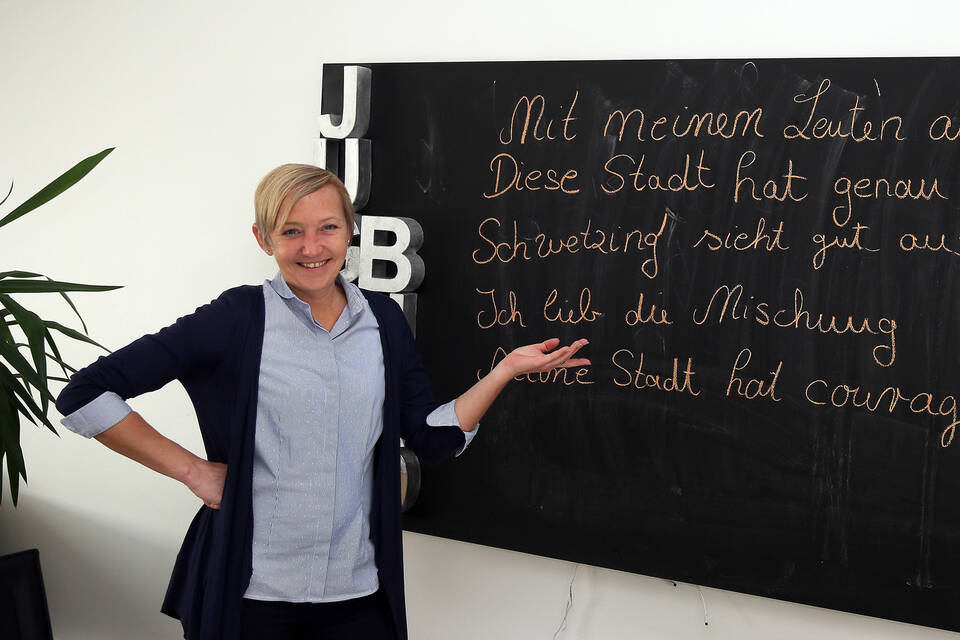 J
B
Mit meinen Leuten a
Diese Stadt hat genau
Schwetzing sieht gut au
Ich lieb die Mischung
Meine Stadt hat courag